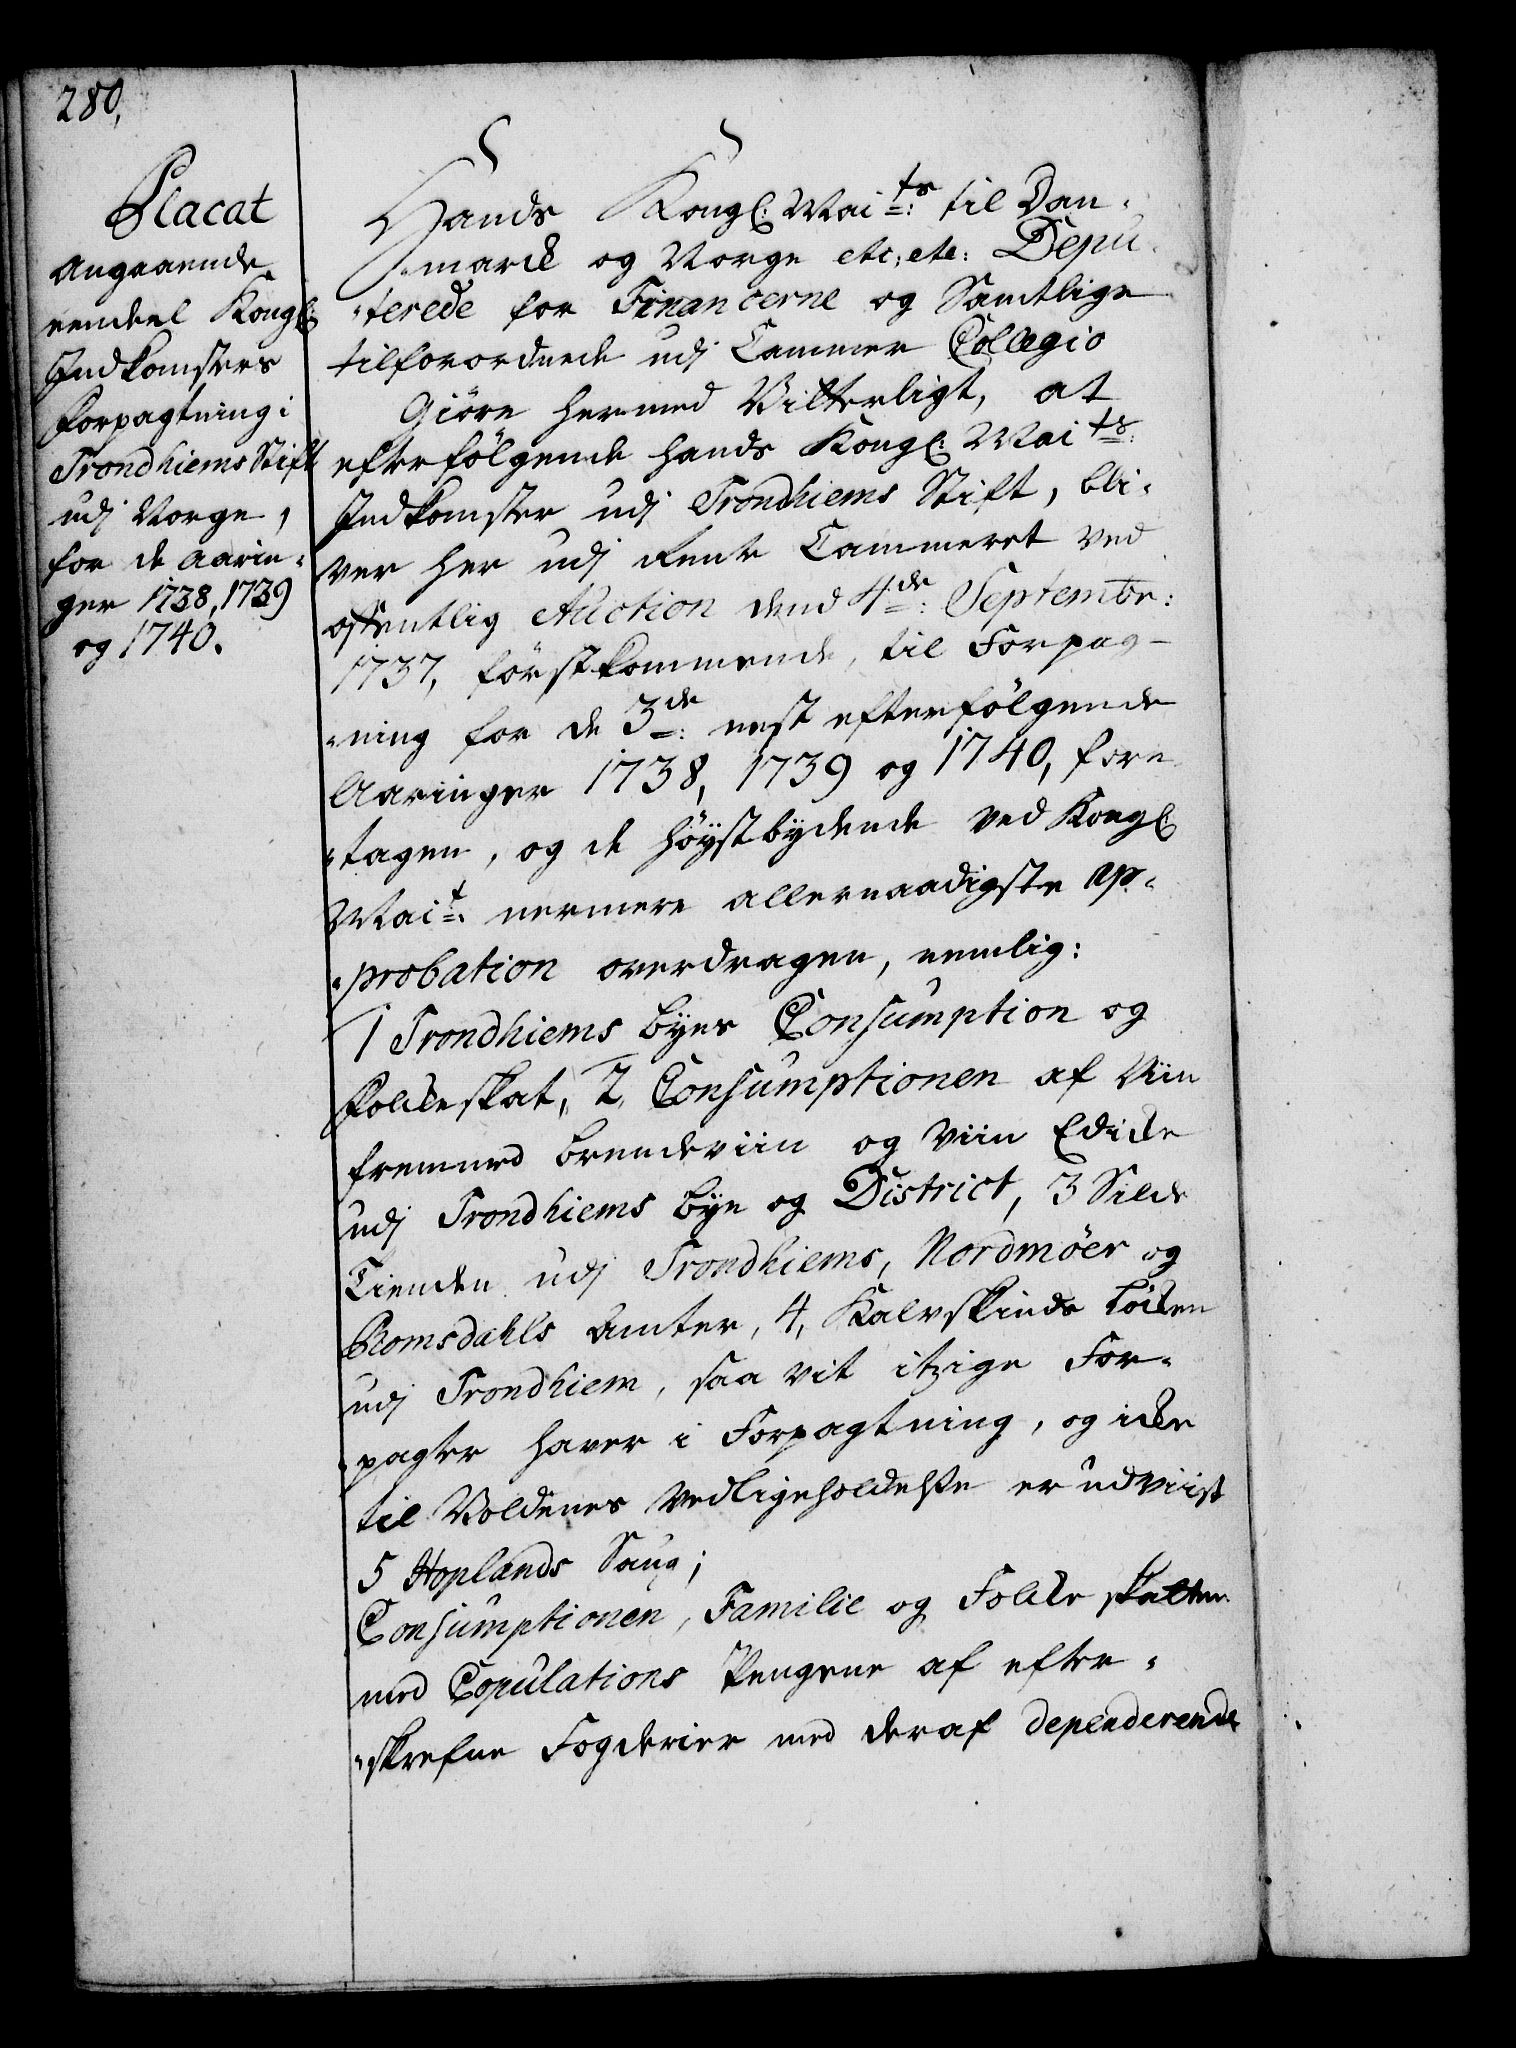 280,
Placat
angaaende
eendeel Kongl:
Indkomsters
forpagtning i
Trondhiems Stift
udj Norge,
for de Aarin-
ger 1738, 1739
og 1740.
Hands Kongl: Mai:ts til Dan-
-marck og Norge etc: etc: Depu-
-terede for Financerne og Samtlige
tilforordnede udj Cammer Collegio
Giöre hermed Vitterligt, at
efterfölgende hands Kongl: Mai:ts
Indkomster udj Trondhiems Stift, bli-
ver her udj Rente Cammeret ved
offentlig Auction dend 4de: Septembr:
1737, förstkommende, til Forpag-
-ning for de 3de: nest efterfölgende
Aaringer 1738, 1739 og 1740, fore-
-tagen, og de höystbydende ved Kongl:
Mai:t nermere allernaadigste ap-
-probation overdragen, nemlig:
1 Trondhiems byes Consumption og
Folckeskat, 2, Consumptionen af Viin
fremmed brendeviin og Viin Edicke
udj Trondhiems bye og District, 3 Silde
Tienden udj Trondhiems, Nordmöer og
Romsdahls Amter, 4, Kalvskinds Löcken
udj Trondhiem, saa vit itzige For-
-pagter haver i Forpagtning, og icke
til Voldenes Vedligeholdelse er udviist
5 Hoplands Saug;
Consumptionen, Familie og Folcke skatten
med Copulations Pengene af efter-
-skrefne Fogderier med deraf dependerende